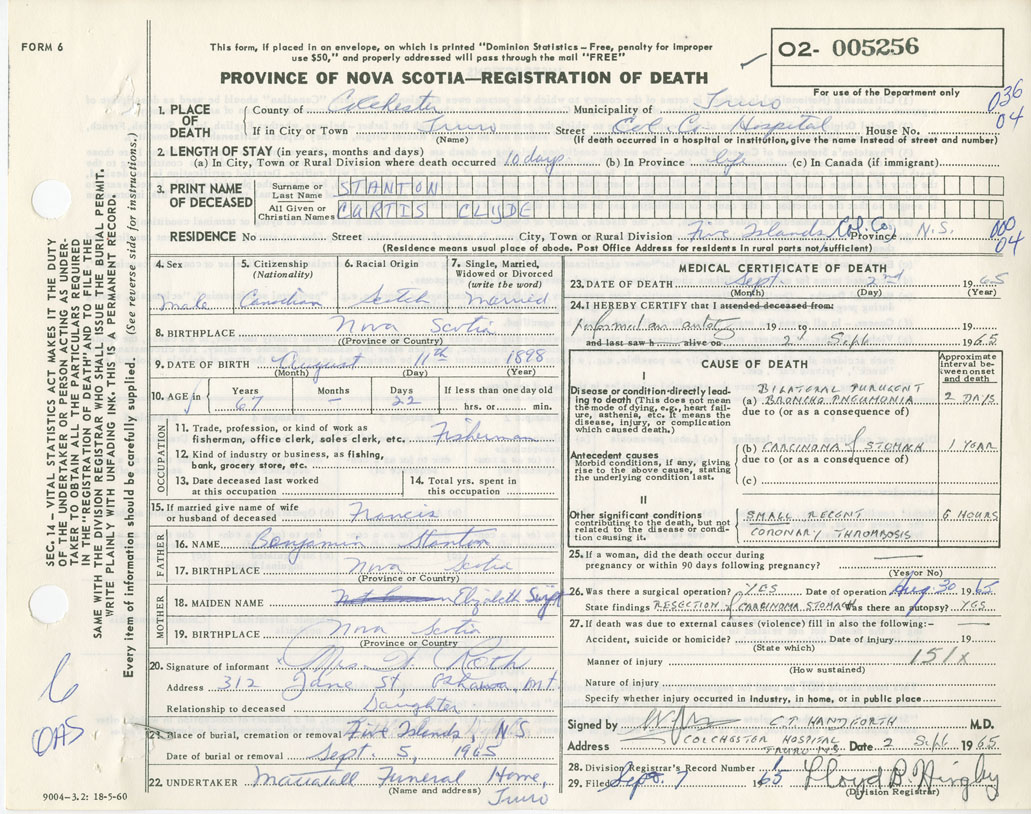 FORM 6
This form, if placed in an envelope, on which is printed "Dominion Statistics – Free, penalty for improper
use $50," and properly addressed will pass through the mail "FREE"
PROVINCE OF NOVA SCOTIA—REGISTRATION OF DEATH
02- 005256
For use of the Department only
036
04
1. PLACE OF DEATH
County of Colchester Municipality of Truro
If in City or Town Truro Street Col. Co. Hospital House No.
(Name) (If death occurred in a hospital or institution, give the name instead of street and number)
2. LENGTH OF STAY (in years, months and days)
(a) In City, Town or Rural Division where death occurred 10 days (b) In Province life (c) In Canada (if immigrant)
3. PRINT NAME OF DECEASED
Surname or Last Name STANTON
All Given or Christian Names CURTIS CLYDE
RESIDENCE No Street City, Town or Rural Division Five Islands Col. Co. Province N.S.
000
04
(Residence means usual place of abode. Post Office Address for residents in rural parts not sufficient)
4. Sex
Male
5. Citizenship (Nationality)
Canadian
6. Racial Origin
Scotch
7. Single, Married, Widowed or Divorced (write the word)
Married
8. BIRTHPLACE Nova Scotia
(Province or Country)
9. DATE OF BIRTH August 11th 1898
(Month) (Day) (Year)
10. AGE Years 67 Months – Days 22 If less than one day old hrs. or min.
OCCUPATION
11. Trade, profession, or kind of work as fisherman, office clerk, sales clerk, etc. Fisherman
12. Kind of industry or business, as fishing, bank, grocery store, etc.
13. Date deceased last worked at this occupation
14. Total yrs. spent in this occupation
15. If married give name of wife or husband of deceased Francis
FATHER
16. NAME Benjamin Stanton
17. BIRTHPLACE Nova Scotia
(Province or Country)
MOTHER
18. MAIDEN NAME Elizabeth
19. BIRTHPLACE Nova Scotia
(Province or Country)
20. Signature of informant Mrs. Roth
Address 312 Jane St, Oshawa, Ont
Relationship to deceased Daughter
21. Place of burial, cremation or removal Five Islands, N S
Date of burial or removal Sept. 5, 1965
22. UNDERTAKER Mattatall Funeral Home, Truro
(Name and address)
9004–3.2: 18-5-60
MEDICAL CERTIFICATE OF DEATH
23. DATE OF DEATH Sept. 2nd 1965
(Month) (Day) (Year)
24. I HEREBY CERTIFY that I attended deceased from:
performed an autopsy 19 to 19
and last saw h alive on 2 Sept 1965
CAUSE OF DEATH
Approximate interval between onset and death
I
Disease or condition directly leading to death (This does not mean the mode of dying, e.g., heart failure, asthenia, etc. It means the disease, injury, or complication which caused death.)
(a) BILATERAL PURULENT BRONCHO PNEUMONIA 2 DAYS
due to (or as a consequence of)
Antecedent causes
Morbid conditions, if any, giving rise to the above cause, stating the underlying condition last.
(b) CARCINOMA of STOMACH 1 YEAR
due to (or as a consequence of)
(c)
II
Other significant conditions contributing to the death, but not related to the disease or condition causing it.
SMALL RECENT CORONARY THROMBOSIS 6 HOURS
25. If a woman, did the death occur during pregnancy or within 90 days following pregnancy? —
(Yes or No)
26. Was there a surgical operation? YES Date of operation Aug 30 1965
State findings RESECTION of CARCINOMA STOMACH Was there an autopsy? YES
27. If death was due to external causes (violence) fill in also the following:– —
Accident, suicide or homicide? Date of injury 19
(State which)
Manner of injury 151X
(How sustained)
Nature of injury
Specify whether injury occurred in industry, in home, or in public place
Signed by C.T. HANDFORTH M.D.
Address COLCHESTER HOSPITAL TRURO N.S. Date 2 Sept 1965
28. Division Registrar's Record Number
29. Filed Sept. 7 1965 Lloyd B. Higby
(Division Registrar)
SEC. 14 – VITAL STATISTICS ACT MAKES IT THE DUTY
OF THE UNDERTAKER OR PERSON ACTING AS UNDER-
TAKER TO OBTAIN ALL THE PARTICULARS REQUIRED
IN THE "REGISTRATION OF DEATH" AND TO FILE THE
SAME WITH THE DIVISION REGISTRAR WHO SHALL ISSUE THE BURIAL PERMIT.
WRITE PLAINLY WITH UNFADING INK. THIS IS A PERMANENT RECORD.
Every item of information should be carefully supplied. (See reverse side for instructions.)
6
OAS